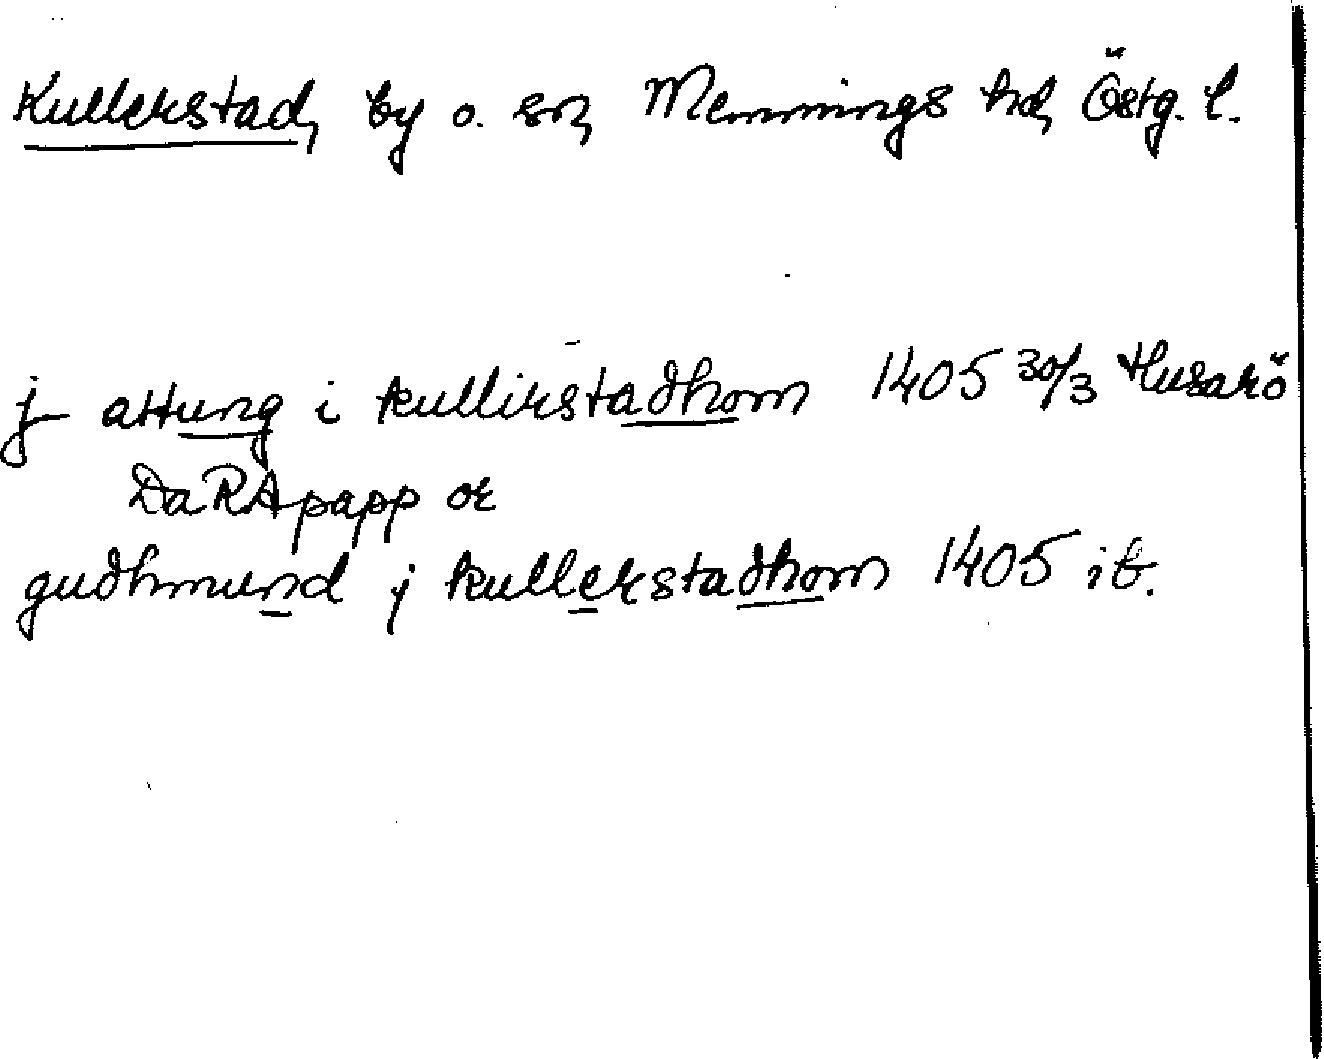 Kullerstad, by o. sn, Memmings hd, Östg. l.
j attung i kullirstadhom 1405 30/3 Husarö
DaRApapp or
gudhmund j kullerstadhom 1405 ib.